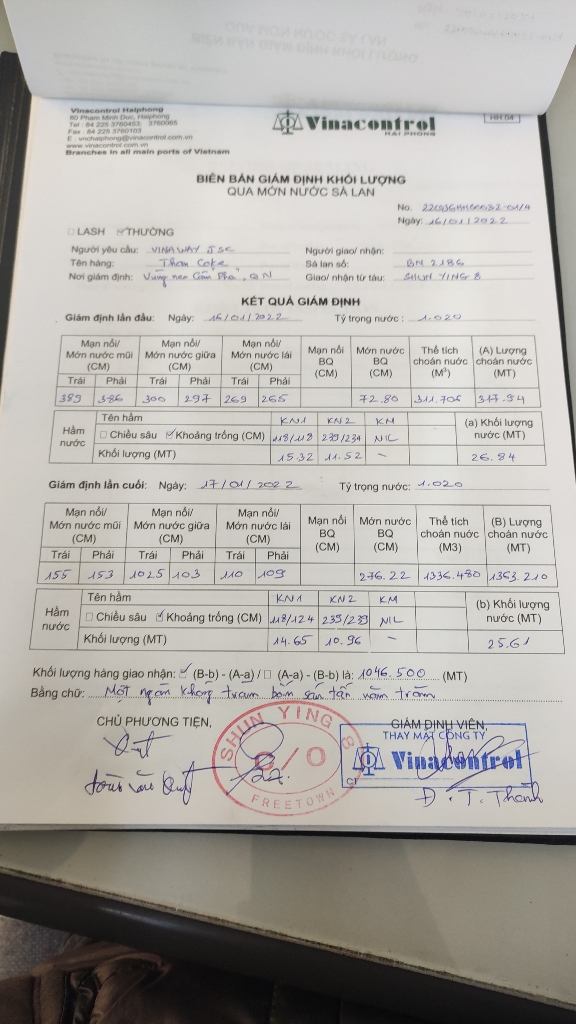 Vinacontrol Haiphong
80 Pham Minh Duc, Haiphong
Tel : 84 225 3760453; 3760065
Fax : 84 225 3760103
E : vnchaiphong@vinacontrol.com.vn
www.vinacontrol.com.vn
Branches in all main ports of Vietnam
Vinacontrol
HAI PHONG
HH 04
BIÊN BẢN GIÁM ĐỊNH KHỐI LƯỢNG
QUA MỚN NƯỚC SÀ LAN
No.
Ngày: 16/01/2022
LASH THƯỜNG
Người yêu cầu: VINAWAY JSC Người giao/ nhận:
Tên hàng: Than Coke Sà lan số: BN 2186
Nơi giám định: Vùng neo Cẩm Phả, QN Giao/ nhận từ tàu: SHUN YING 8
KẾT QUẢ GIÁM ĐỊNH
Giám định lần đầu: Ngày: 16/01/2022 Tỷ trọng nước : 1.020
Mạn nổi/ Mớn nước mũi (CM) Mạn nổi/ Mớn nước giữa (CM) Mạn nổi/ Mớn nước lái (CM) Mạn nổi BQ (CM) Mớn nước BQ (CM) Thể tích choán nước (M³) (A) Lượng choán nước (MT)
Trái Phải Trái Phải Trái Phải
389 386 300 297 269 265 72.80 311.706 317.94
Hầm nước Tên hầm KN1 KN2 KM (a) Khối lượng nước (MT)
Chiều sâu Khoảng trống (CM) 118/118 239/234 NIL
Khối lượng (MT) 15.32 11.52 - 26.84
Giám định lần cuối: Ngày: 17/01/2022 Tỷ trọng nước: 1.020
Mạn nổi/ Mớn nước mũi (CM) Mạn nổi/ Mớn nước giữa (CM) Mạn nổi/ Mớn nước lái (CM) Mạn nổi BQ (CM) Mớn nước BQ (CM) Thể tích choán nước (M3) (B) Lượng choán nước (MT)
Trái Phải Trái Phải Trái Phải
155 153 1025 103 110 109 276.22 1336.480 1363.210
Hầm nước Tên hầm KN1 KN2 KM (b) Khối lượng nước (MT)
Chiều sâu Khoảng trống (CM) 118/124 235/239 NIL
Khối lượng (MT) 14.65 10.96 - 25.61
Khối lượng hàng giao nhận: (B-b) - (A-a) / (A-a) - (B-b) là: 1046.500 (MT)
Bằng chữ: Một ngàn không trăm bốn sáu tấn năm trăm
CHỦ PHƯƠNG TIỆN, GIÁM ĐỊNH VIÊN,
THAY MẶT CÔNG TY
Vinacontrol
SHUN YING 8
C/O
FREETOWN
Đ.T. Thành